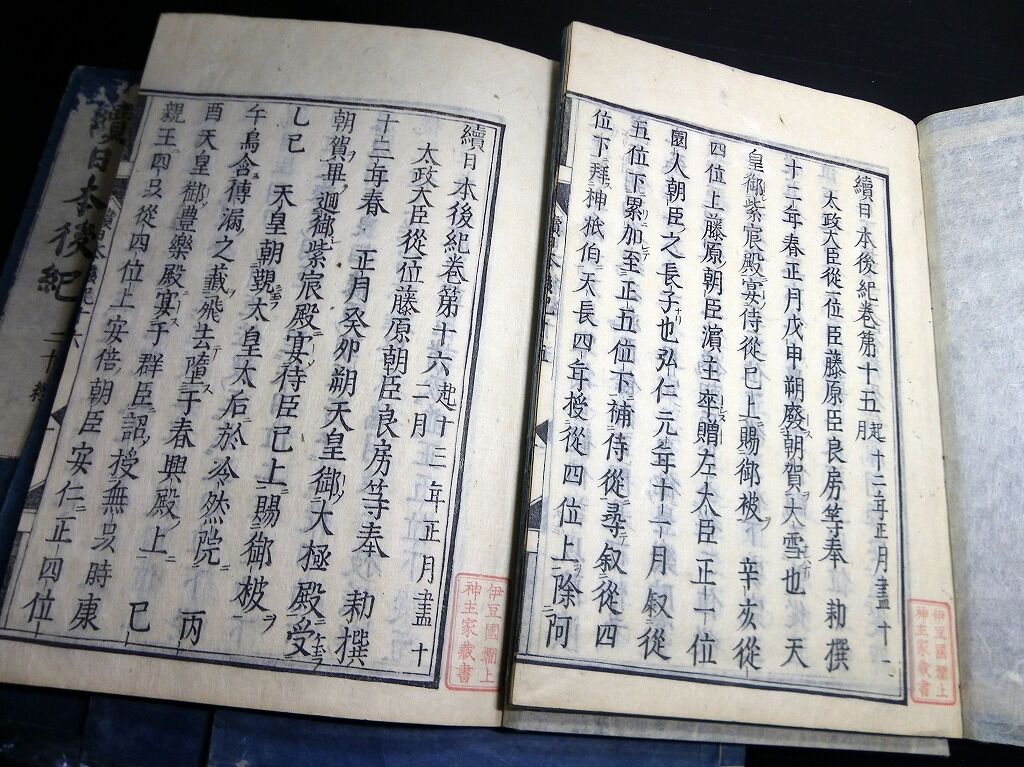 續日本後紀卷第十五 起十二年正月盡十二月
太政大臣從一位臣藤原臣良房等奉 勅撰
十二年春正月戊申朔廢朝賀大雪也 天
皇御紫宸殿宴侍從已上賜御被 辛亥從
四位上藤原朝臣濱主卒贈左大臣正一位
園人朝臣之長子也弘仁元年十一月叙從
五位下累加至正五位下補侍從尋叙從四
位下拜神祇伯天長四年授從四位上除阿
續日本後紀卷第十六 起十三年正月盡十二月
太政大臣從一位藤原朝臣良房等奉 勅撰
十三年春 正月癸卯朔天皇御大極殿受
朝賀畢廻御紫宸殿宴侍臣已上賜御被
乙巳 天皇朝覲太皇太后於冷然院 丙
午烏含傳漏之籤飛去墮于春興殿上 己
酉天皇御豐樂殿宴于群臣詔授無品時康
親王四品從四位上安倍朝臣安仁正四位
續日本後紀
神主家藏書
神主家藏書